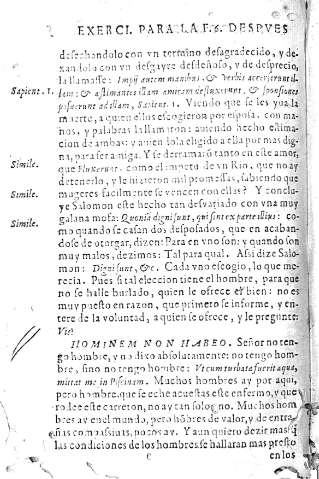 EXERCI. PARA LA F.6. DESPVES
desechandolo con vn termino desagradecido, y de-
xandolo con vn desgayre desdeñoso, y de desprecio,
la llamasse: Impij autem manibus, & verbis accersierunt il-
Sapient. 1. lam: & æstimantes illam amicam defluxerunt, & sponsiones
posuerunt ad illam, Sapient. 1. Viendo que se les yua la
muerte, a quien ellos escogieron por esposa, con ma-
nos, y palabras la llamaron: auiendo hecho estima-
cion de ambas: y auiendola eligido a ella por mas dig-
na, para ser amiga. Y se derramarō tanto en este amor,
Simile. que fluxerunt: como el impetu de vn Rio, que no ay
detenerlo, y le hizieron mil promessas, sabiendo que
Simile. mugeres facilmente se vencen con ellas? Y conclu-
ye Salomon este hecho tan desuariado con vna muy
galana mofa: Quoniā digni sunt, qui sint ex parte illius: co-
Simile. mo quando se casan dos desposados, que en acaban-
dose de otorgar, dizen: Para en vno son: y quando son
muy malos, dezimos: Tal para qual. Assi dize Salo-
mon: Digni sunt, &c. Cada vno escogio, lo que me-
recia. Pues si tal eleccion tiene el hombre, para que
no se halle burlado, quien le ofrece el bien: no es
muy puesto en razon, que primero se informe, y en-
tere de la voluntad, a quien se ofrece, y le pregunte:
Vis?
HOMINEM NON HABEO. Señor no ten-
go hombre, y no dixo absolutamente: no tengo hom-
bre, sino no tengo hombre: Vt cum turbata fuerit aqua,
mittat me in Piscinam. Muchos hombres ay por aqui,
pero hombre, que se eche acuestas este enfermo, y que
rodee este carreton, no ay tan solo vno. Muchos hom
bres ay en el mundo, pero hōbres de valor, y de entra-
ñas compassiuas, pocos ay. Y aun quiero dezir mas: q̄
las condiciones de los hombres se hallaran mas presto
c en los